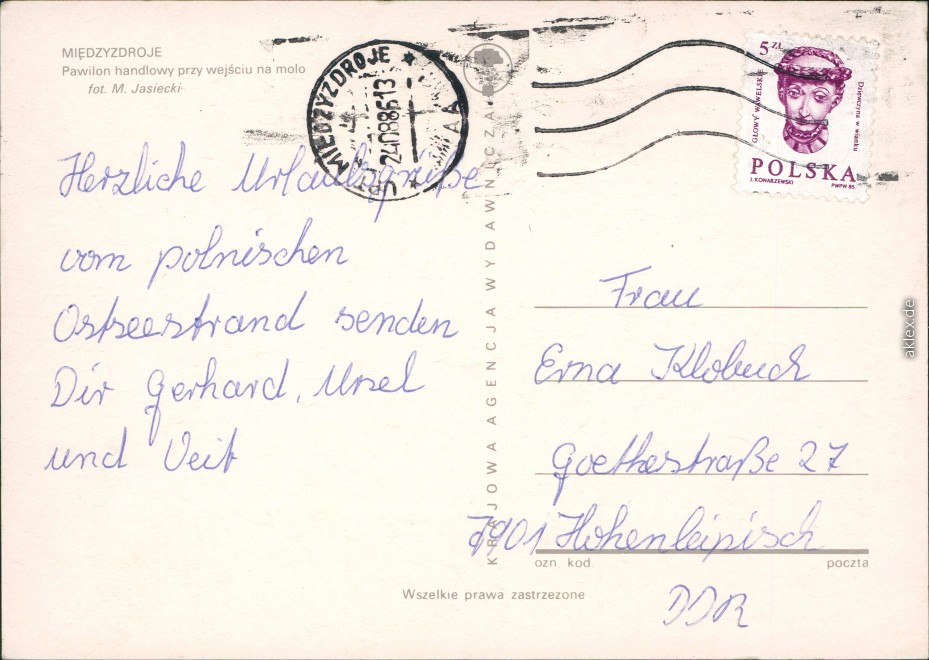 MIĘDZYZDROJE
Pawilon handlowy przy wejściu na molo
fot. M. Jasiecki
Herzliche Urlaubsgrüße
vom polnischen
Ostseestrand senden
Dir Gerhard, Ursel
und Veit
MIĘDZYZDROJE
240886-13
KRAJOWA AGENCJA WYDAWNICZA
5 ZŁ
GŁOWY WAWELSKIE
Dziewczyna w wianku
POLSKA
J. KONARZEWSKI
PWPW 85.
Frau
Erna Klobuch
Goethestraße 27
7901 Hohenleipisch
ozn. kod
poczta
DDR
Wszelkie prawa zastrzezone
aklex.de